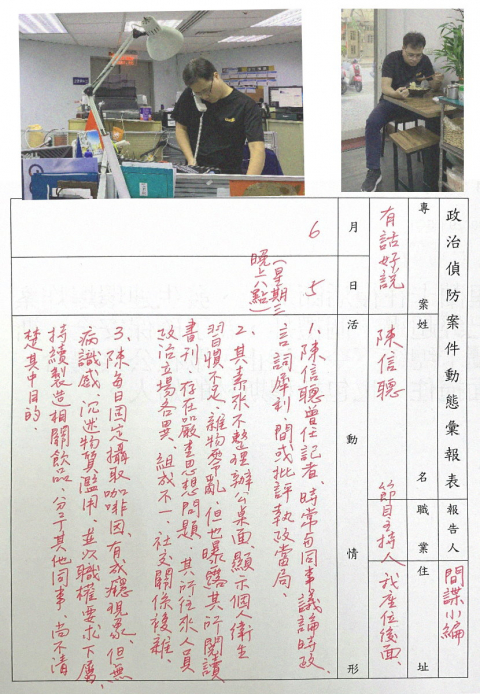 政治偵防案件動態彙報表
報告人
間諜小編
專案
有話好說
姓名
陳信聰
職業
節目主持人
住址
我座位後面、
月
6
日
5
(星期三
晚上八點)
活動情形
1、陳信聰曾任記者、時常與同事議論時政、
言詞犀利、間或批評執政當局、
2、其素來不整理辦公桌面、顯示個人衛生
習慣不足、雜物零亂、但也曝露其所閱讀
書刊、存在嚴重思想問題、其所往來人員
政治立場各異、組成不一、社交關係複雜、
3、陳每日固定攝取咖啡因、有成癮現象、但無
病識感、沉迷物質濫用、並以職權要求下屬、
持續製造相關飲品、分予其他同事、尚不清
楚其中目的、